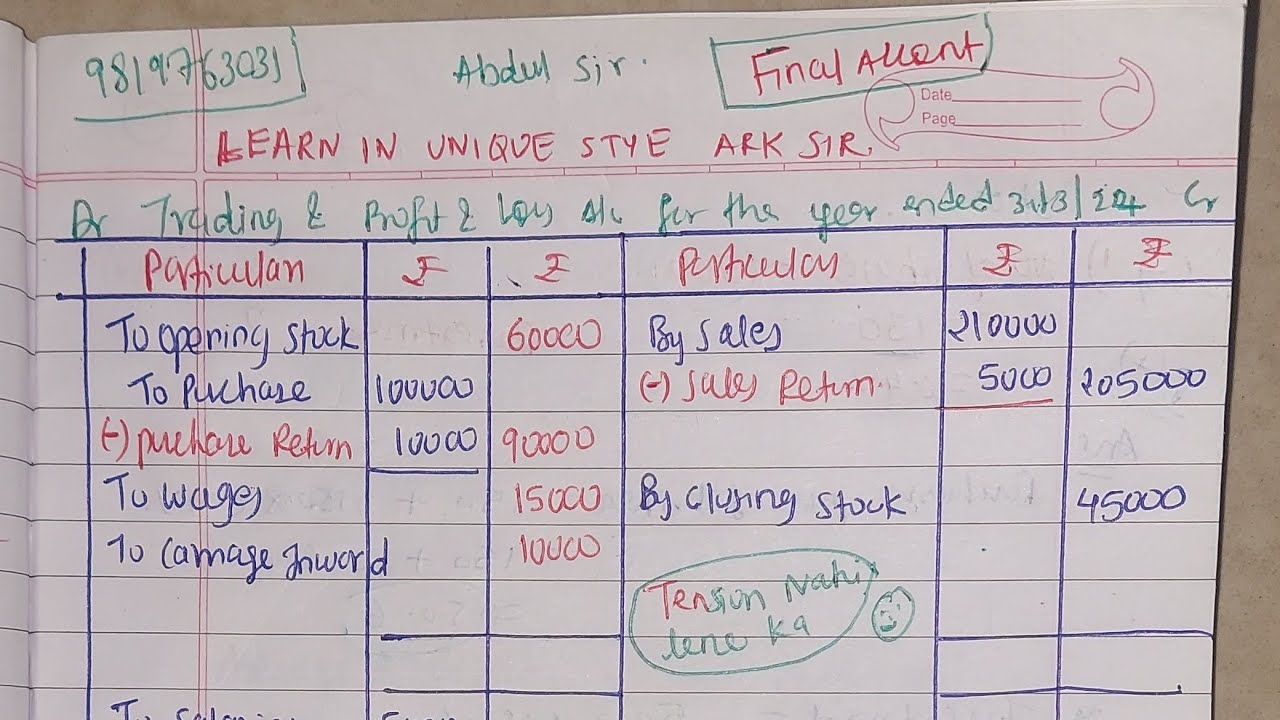 9819763031 Abdul Sir. Final Account
Date
Page
LEARN IN UNIQUE STYE ARK SIR.
Dr Trading & Profit & Loss A/c for the year ended 31/3/24 Cr
Particulars ₹ ₹ Particulars ₹ ₹
To opening stock 60000 By Sales 210000
To Purchase 100000 (-) Sales Return. 5000 205000
(-) purchase Return 10000 90000
To wages 15000 By Closing stock 45000
To Carriage Inword 10000
Tension Nahi
lene ka